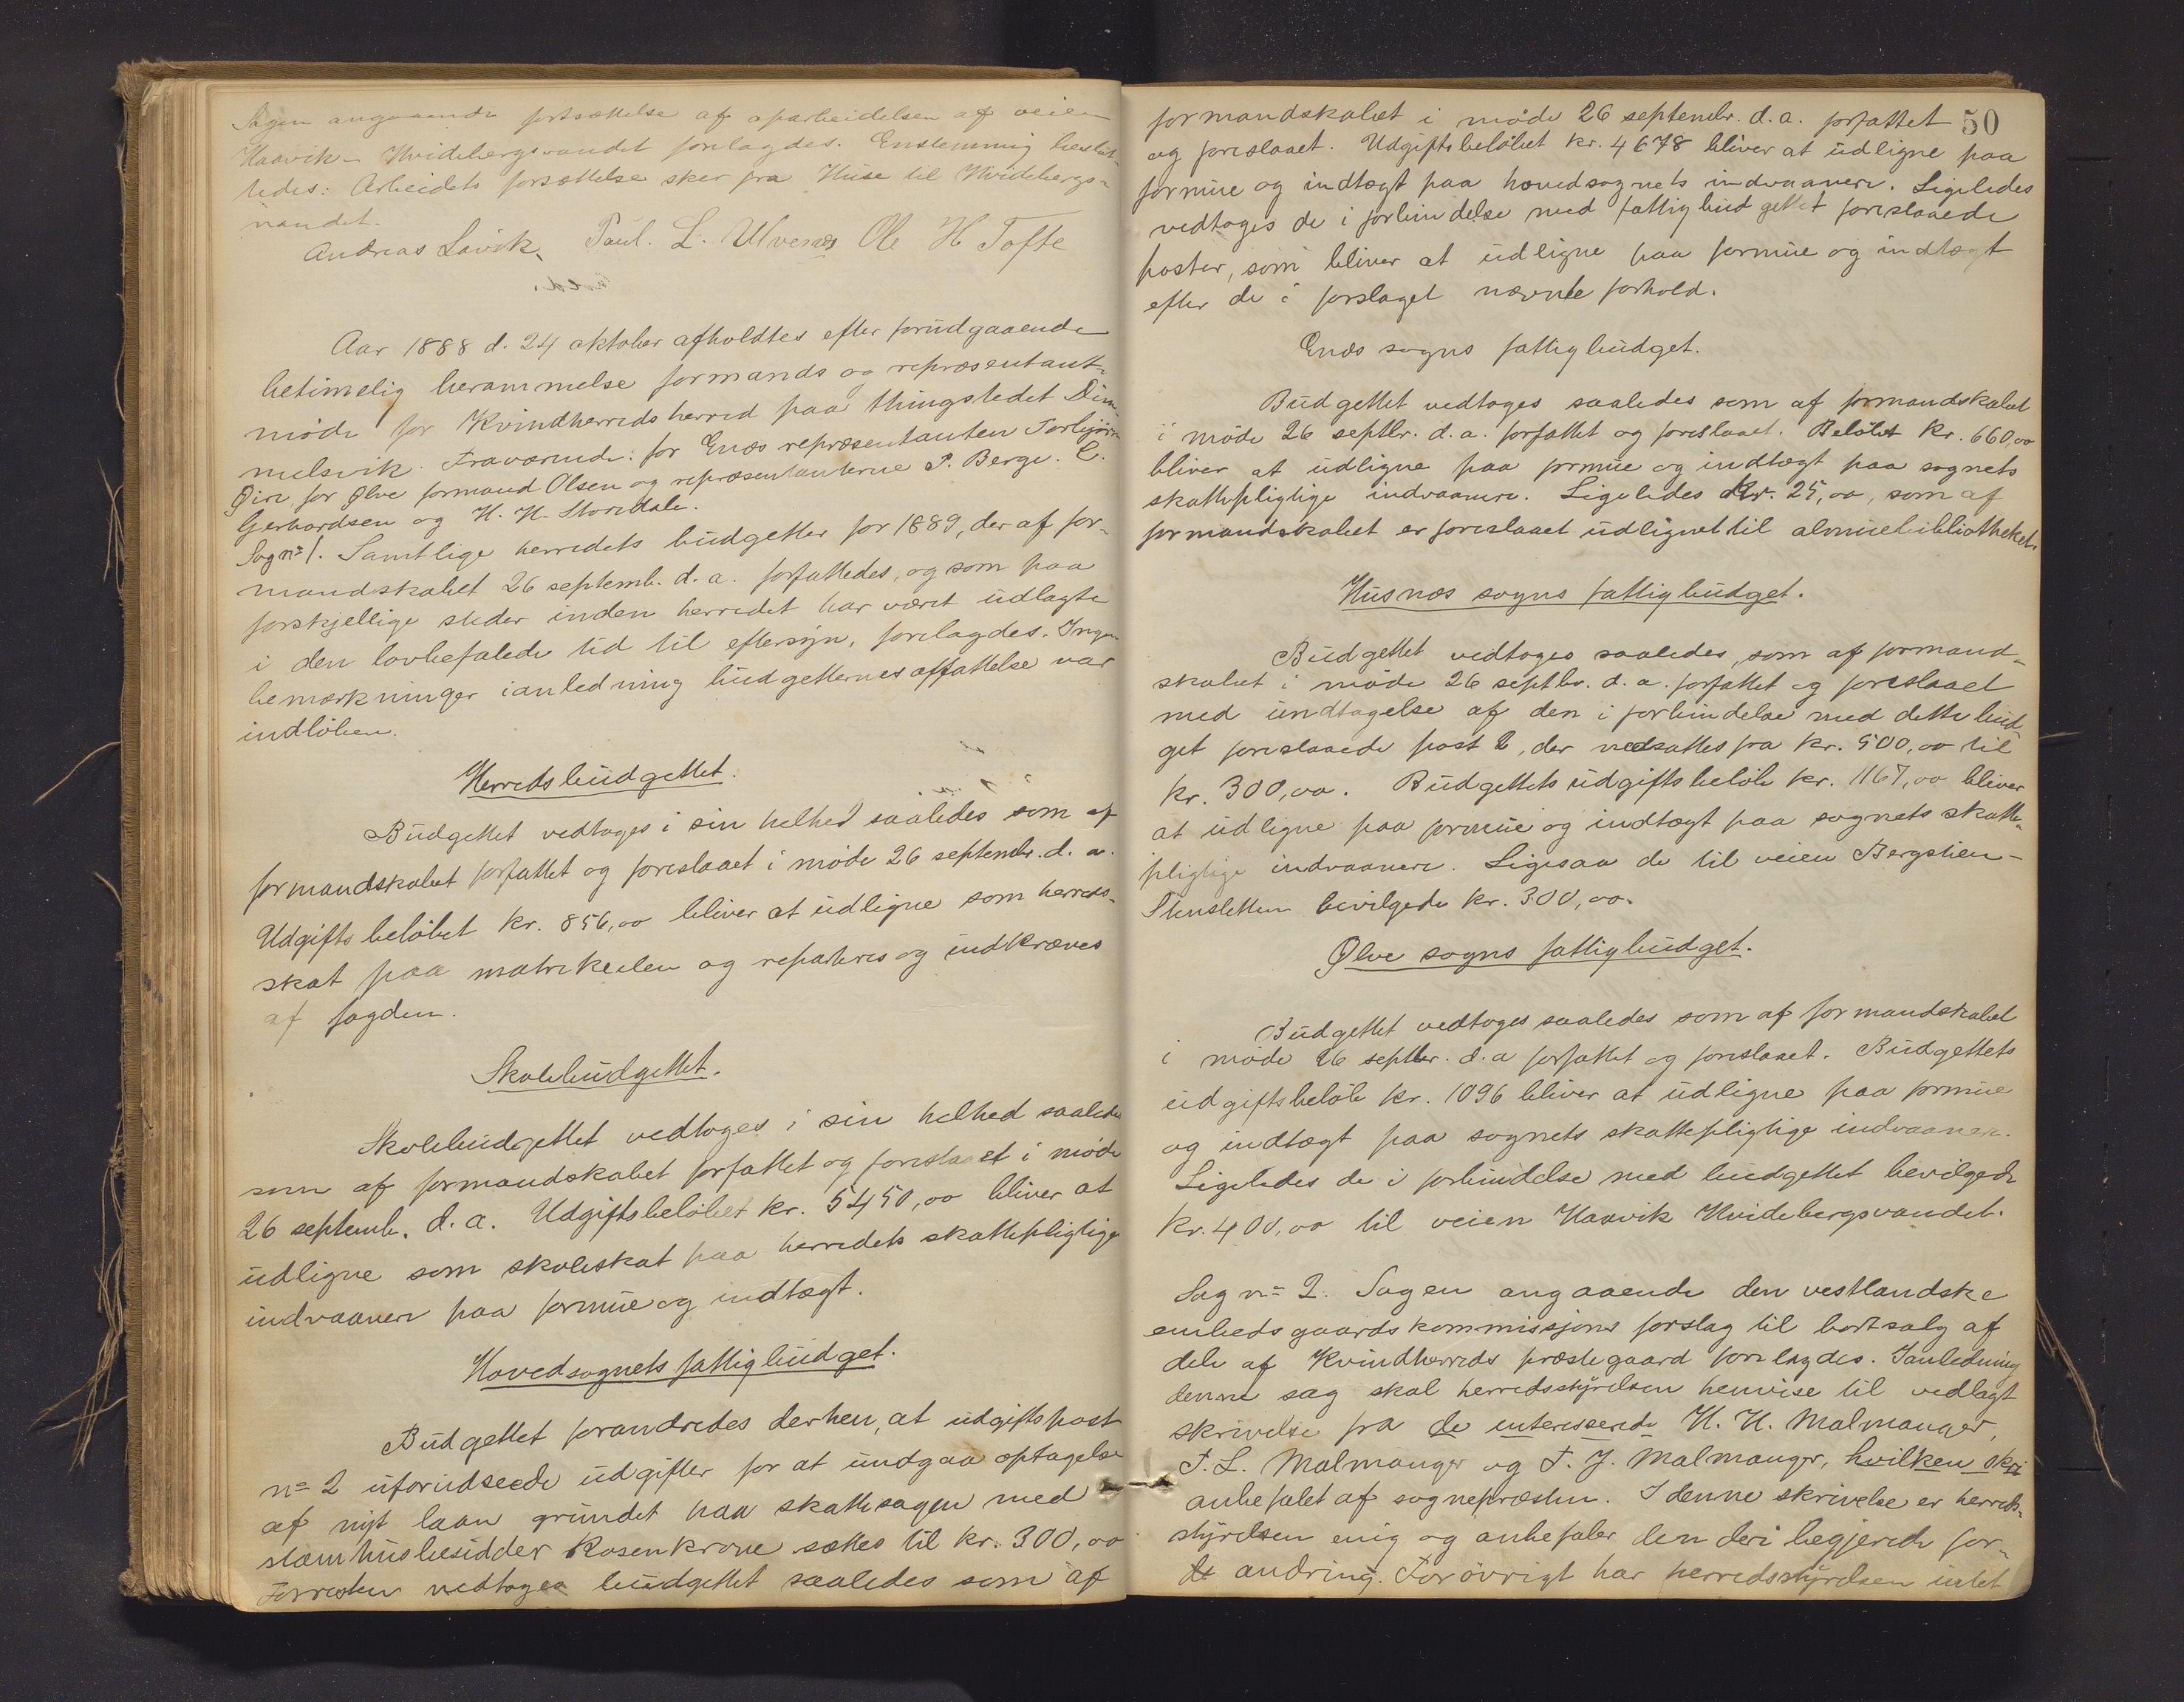 Sagen angaaende fortsættelse af oparbeidelsen af veien
Haavik - Hvidebergsvandet forelagdes. Enstemmig beslut-
tedes: Arbeidets forsættelse sker fra Huse til Hvidebergs-
vandet.
Andreas Løvik. Paul. L. Ulvenes Ole H Tofte
Aar 1888 d. 24 oktober afholdtes efter forudgaaende
betimelig berammelse formands og repræsentant-
møde for Kvindherreds herred paa thingstedet Dim-
melsvik. Fraværende: for Enæs repræsentanten Torbjørn
Øire, for Ølve formand Olsen og repræsentanterne P. Berge. C.
Gerhardsen og H. H. Storedale.
Sag n= 1. Samtlige herredets budgetter for 1889, der af for-
mandskabet 26 septemb. d. a. forfattedes, og som paa
forskjellige steder inden herredet har været udlagte
i den lovbefalede tid til eftersyn, forelagdes. Ingen
bemærkninger ianledning budgetternes affattelse var
indløben.
Herredsbudgettet.
Budgettet vedtoges i sin helhed saaledes som af
formandskabet forfattet og foreslaaet i møde 26 septembr. d. a.
Udgiftsbeløbet kr. 856,00 bliver at udligne som herreds-
skat paa matrikelen og reparteres og indkræves
af fogden.
Skolebudgettet.
Skolebudgettet vedtoges i sin helhed saaledes
som af formandskabet forfattet og foreslaaet i møde
26 septemb. d. a. Udgiftsbeløbet kr. 5450,00 bliver at
udligne som skoleskat paa herredets skattepligtige
indvaanere paa formue og indtægt.
Hovedsognets fattigbudget.
Budgettet forandredes derhen, at udgiftspost
n= 2 uforudseede udgifter for at undgaa optagelse
af nyt laan grundet paa skattesagen med
stamhusbesidder Rosenkrone sættes til kr. 300,00
Forresten vedtoges budgettet saaledes som af
50
formandskabet i møde 26 septembr. d. a. forfattet
og foreslaaet. Udgiftsbeløbet kr. 4678 bliver at udligne paa
formue og indtægt paa hovedsognets indvaanere. Ligeledes
vedtoges de i forbindelse med fattigbudgettet foreslaaede
poster, som bliver at udligne paa formue og indtægt
efter de i forslaget nævnte forhold.
Enæs sogns fattigbudget.
Budgettet vedtoges saaledes som af formandskabet
i møde 26 septbr. d. a. forfattet og foreslaaet. Beløbet kr. 660,00
bliver at udligne paa formue og indtægt paa sognets
skattepligtige indvaanere. Ligeledes kr. 25,00, som af
formandskabet er foreslaaet udlignet til almuebibliotheket.
Husnæs sogns fattigbudget.
Budgettet vedtoges saaledes, som af formand-
skabet i møde 26 septbr. d. a. forfattet og foreslaaet
med undtagelse af den i forbindelse med dette bud-
get foreslaaede post 2, der nedsattes fra kr. 500,00 til
kr. 300,00. Budgettets udgiftsbeløb kr. 1167,00 bliver
at udligne paa formue og indtægt paa sognets skatte-
pligtige indvaanere. Ligesaa de til veien Bergstien -
Stensletten bevilgede kr. 300,00.
Ølve sogns fattigbudget.
Budgettet vedtoges saaledes som af formandskabet
i møde 26 septbr. d. a forfattet og foreslaaet. Budgettets
udgiftsbeløb kr. 1096 bliver at udligne paa formue
og indtægt paa sognets skattepligtige indvaanere.
Ligeledes de i forbindelse med budgettet bevilgede
kr. 400,00 til veien Haavik Hvidebergsvandet.
Sag n= 2. Sagen angaaende den vestlandske
embedsgaardskommissjons forslag til bortsalg af
dele af Kvindherreds præstegaard forelagdes. Ianledning
denne sag skal herredsstyrelsen henvise til vedlagt
skrivelse fra de interesserede H. H. Malmanger,
T. L. Malmanger og T. J. Malmanger, hvilken skri
anbefalet af sognepræsten. I denne skrivelse er herreds-
styrelsen enig og anbefaler den deri begjærede for-
andring. Forøvrigt har herredsstyrelsen intet